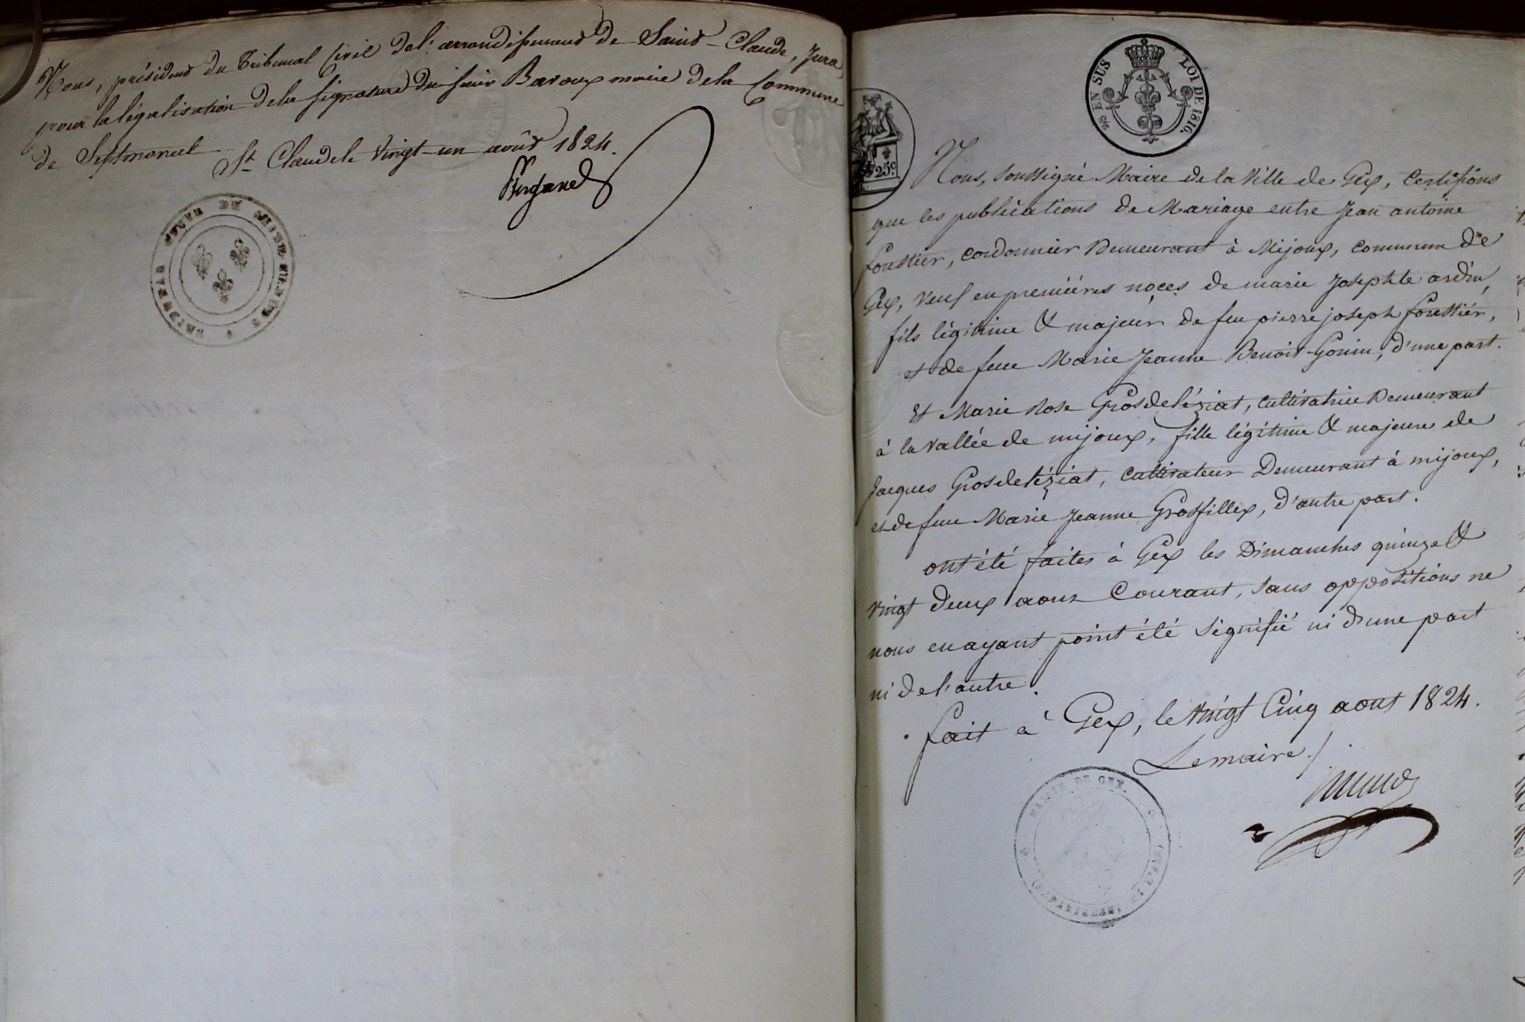 Nous, président du Tribunal Civil de l'arrondissement de Saint-Claude, Jura,
pour la légalisation de la signature du sieur Baroux maire de la Commune
de Septmoncel St Claude le vingt-un août 1824.
EN SUS
LOI DE 1816.
25c
Nous, soussigné Maire de la Ville de Gex, certifions
que les publications de Mariage entre Jean antoine
forestier, cordonnier Demeurant à Mijoux, commune de
Gex, veuf en premières noces de marie Josephte ardin,
fils légitime & majeur de feu pierre joseph forestier,
et de feue Marie Jeanne Benoit-Gonin, d'une part.
Et Marie Rose Grosdeléziat, cultivatrice Demeurant
à la vallée de mijoux, fille légitime & majeure de
Jacques Grosdeléziat, cultivateur Demeurant à mijoux,
et de feue Marie Jeanne Grosfillex, d'autre part.
ont été faites à Gex les Dimanches quinze &
vingt deux aout Courant, sans oppositions ne
nous en ayant point été signifié ni d'une part
ni de l'autre.
fait à Gex, le vingt Cinq aout 1824.
Le maire
MAIRIE DE GEX.
(DÉPARTEMENT DE L'AIN)